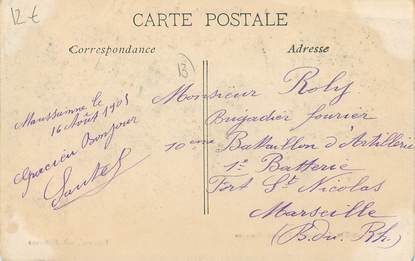 12 €
CARTE POSTALE
Correspondance
Adresse
13
Maussanne le
16 Août 1905
Gracieu Bonjour
Monsieur Roly
Brigadier fourier
10eme Battaillon d'Artillerie
1e Batterie
Fort St Nicolas
Marseille
(B. du. Rh.)